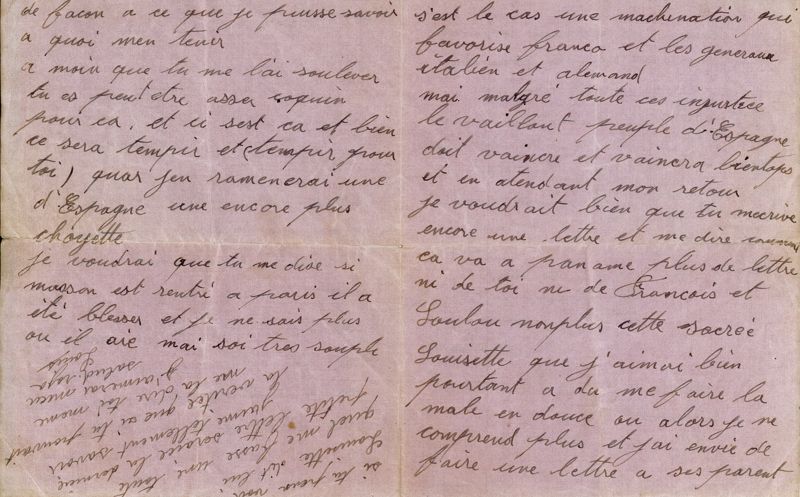 de facon a ce que je puisse savoir
a quoi men tenir
a moin que tu me l'ai soulever
tu es peut etre asser coquin
pour ca, et ci s'est ca et bien
ce sera tempir et (tempir pour
toi) quar jen ramenerai une
d'Espagne une encore plus
chouette
je voudrai que tu me dise si
masson est rentré a paris il a
été blesser et je ne sais plus
ou il aie mai soi tres souple
si tu peus voir
Louisette dit lui
quel me fasse une toute derniere
petite lettre j'aime tellement savoir
la veritée que si tu pouvait
me la dire toi meme
j'aimerai mieu
salud
Louis
s'est le cas une machination qui
favorise franco et les generaux
italien et alemand
mai malgré toute ces injustece
le vaillant peuple d'Espagne
doit vaincre et vaincra bientops
et en atendant mon retour
je voudrait bien que tu mecrive
encore une lettre et me dire comment
ca va a paname plus de lettre
ni de toi ni de François et
Loulou nonplus cette sacreé
Louisette que j'aimai bien
pourtant a du me faire la
male en douce ou alors je ne
comprend plus et j'ai envie de
faire une lettre a ses parent